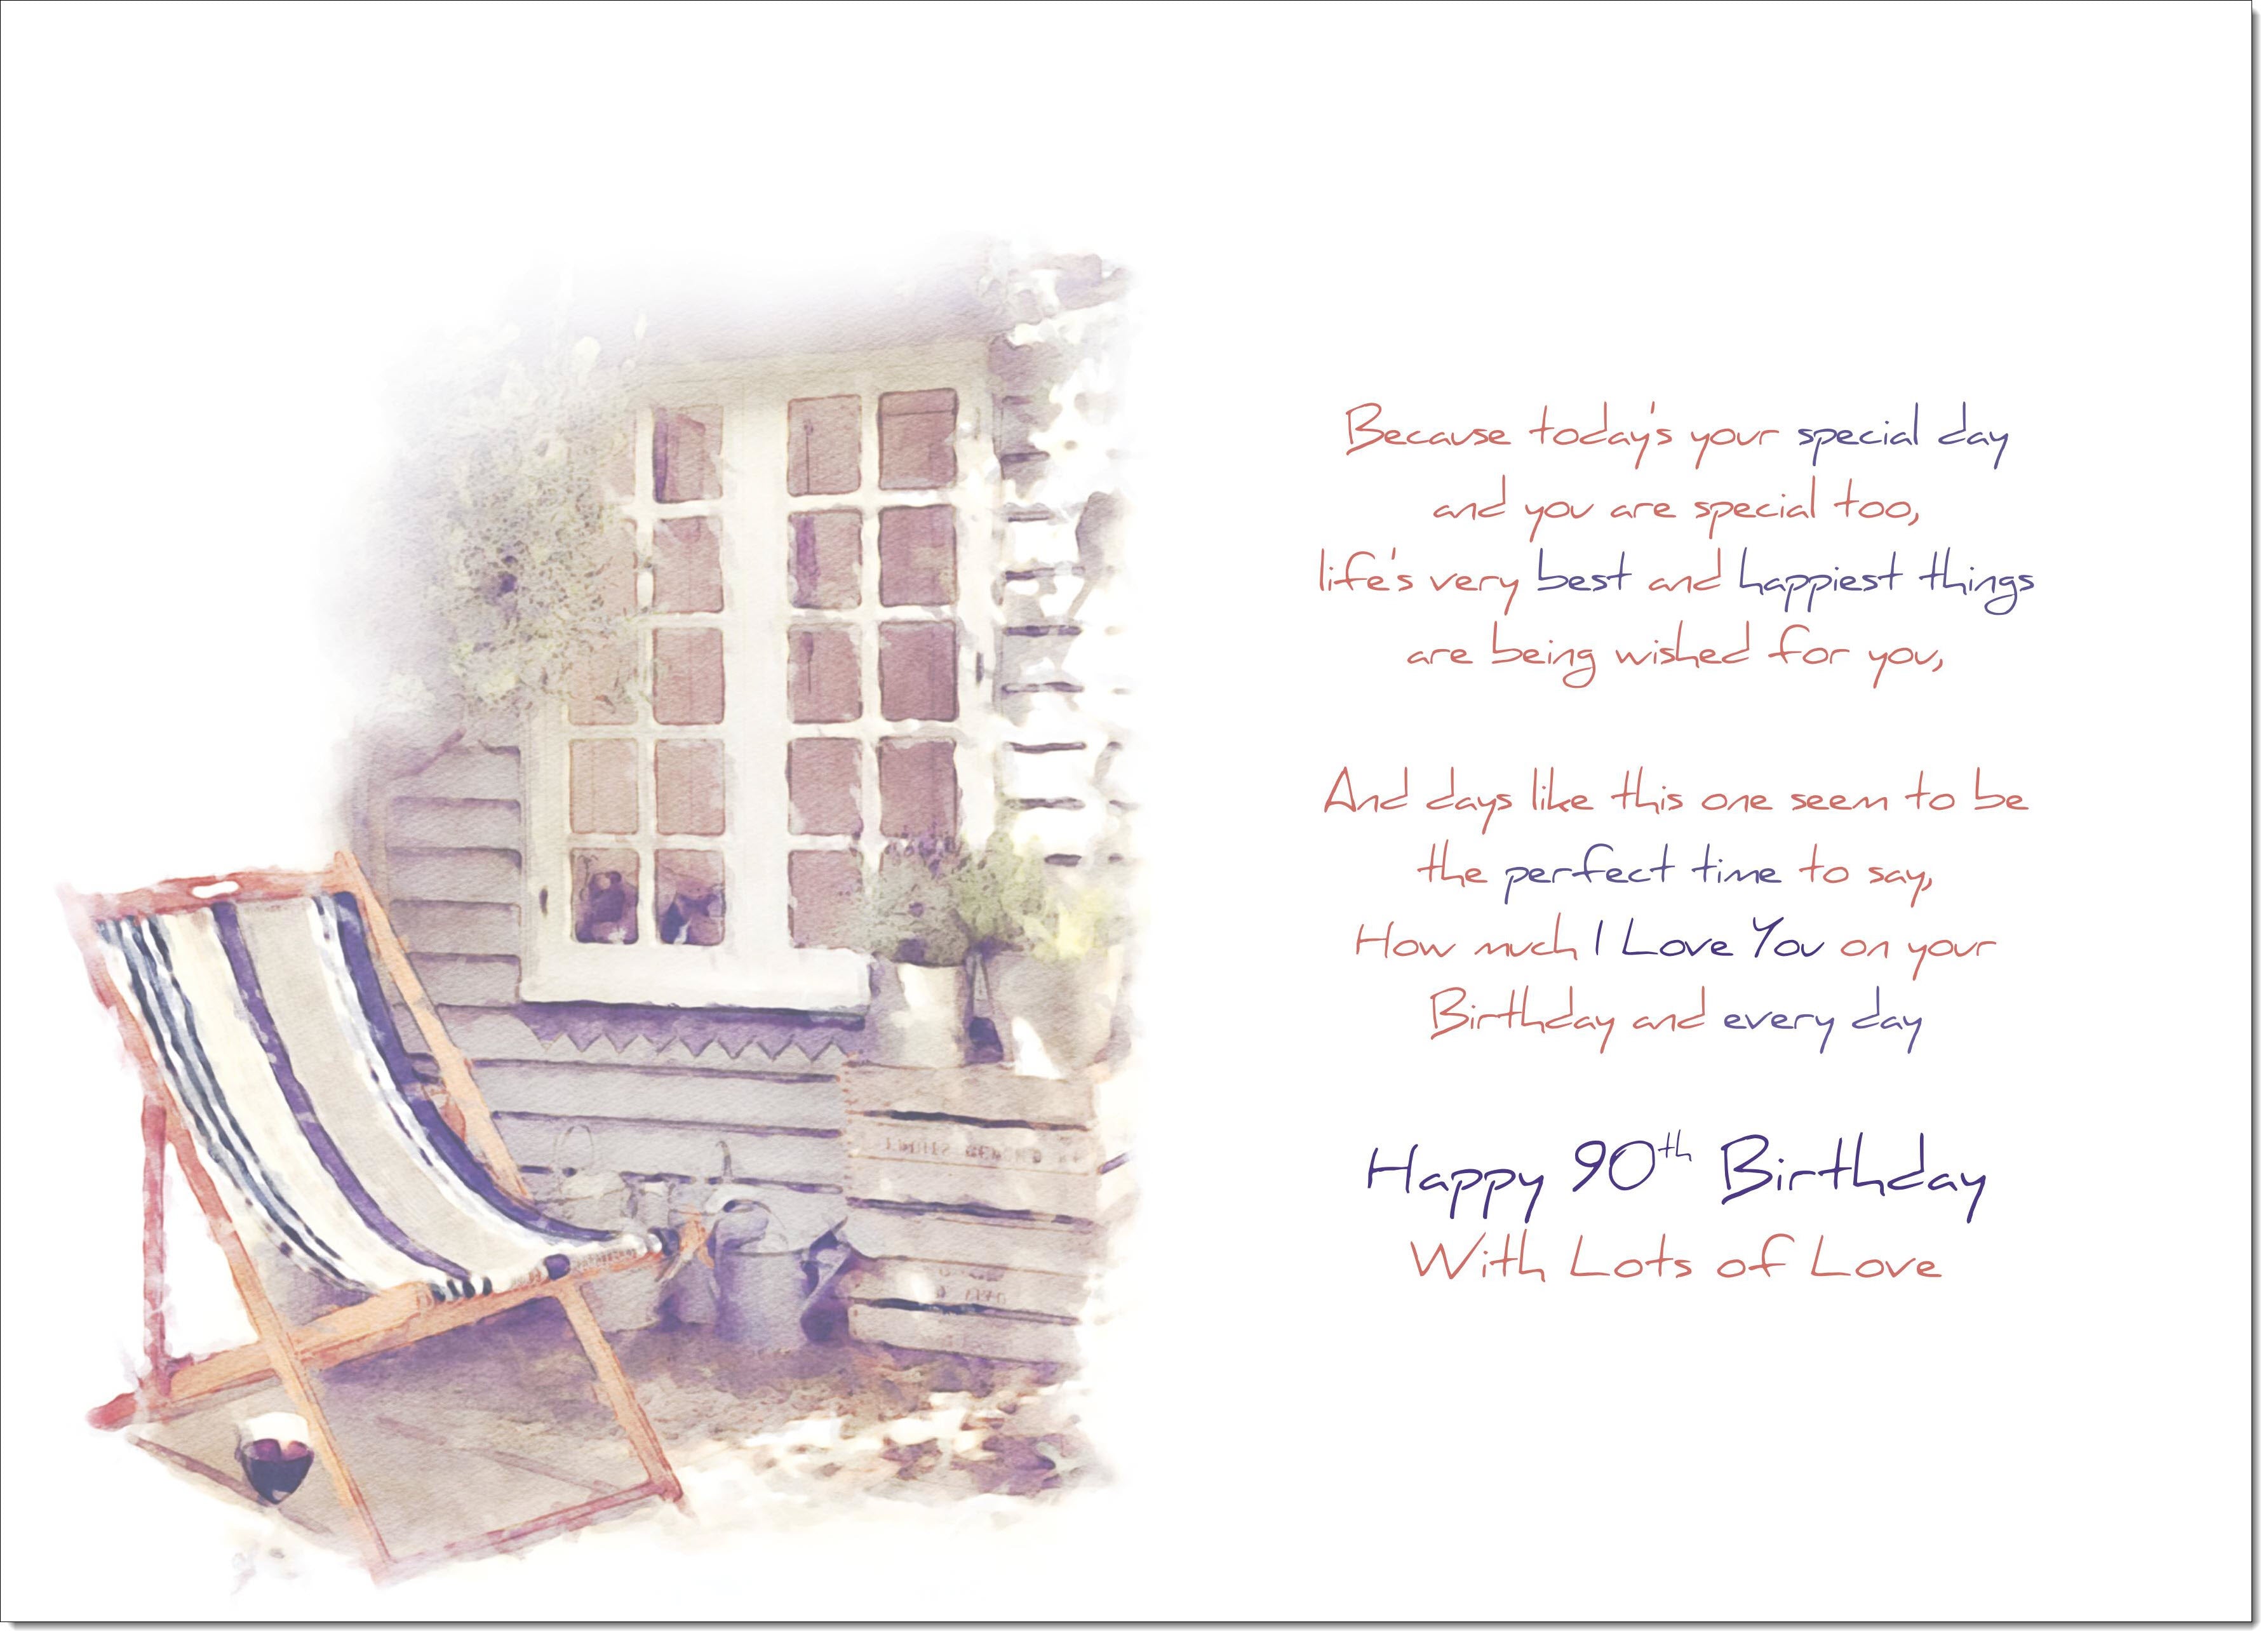 Because today's your special day
and you are special too,
life's very best and happiest things
are being wished for you,
And days like this one seem to be
the perfect time to say,
How much I Love You on your
Birthday and every day
Happy 90th Birthday
With Lots of Love